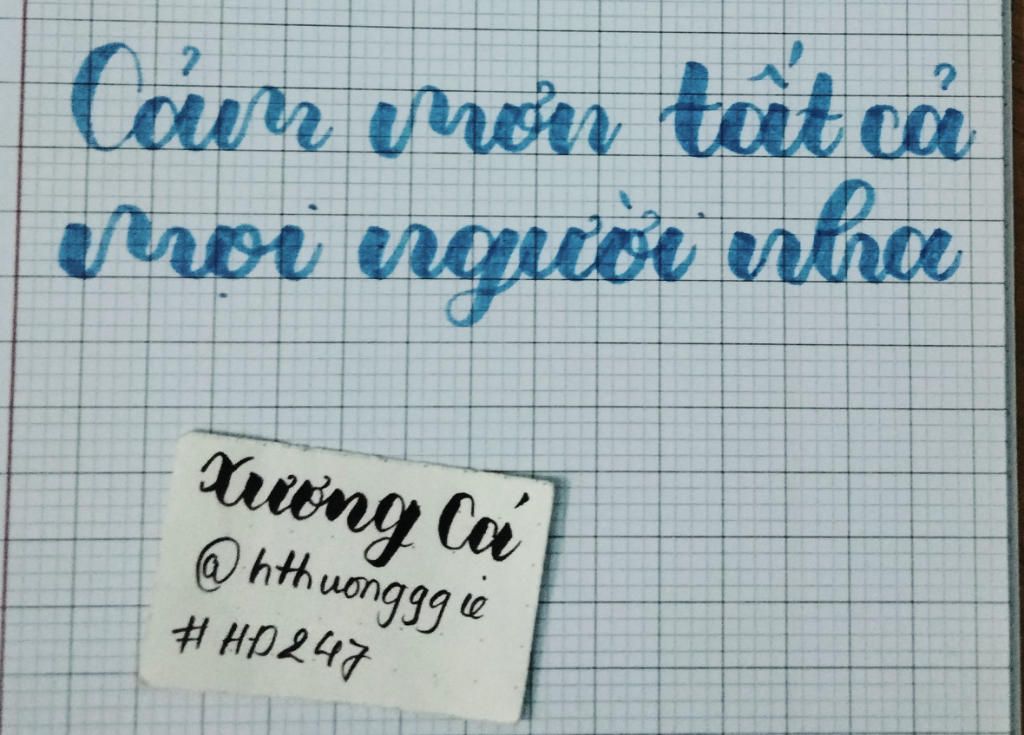 Cảm mơn tất cả
mọi người nha
Xương Cá
@hthuongggie
#HD247